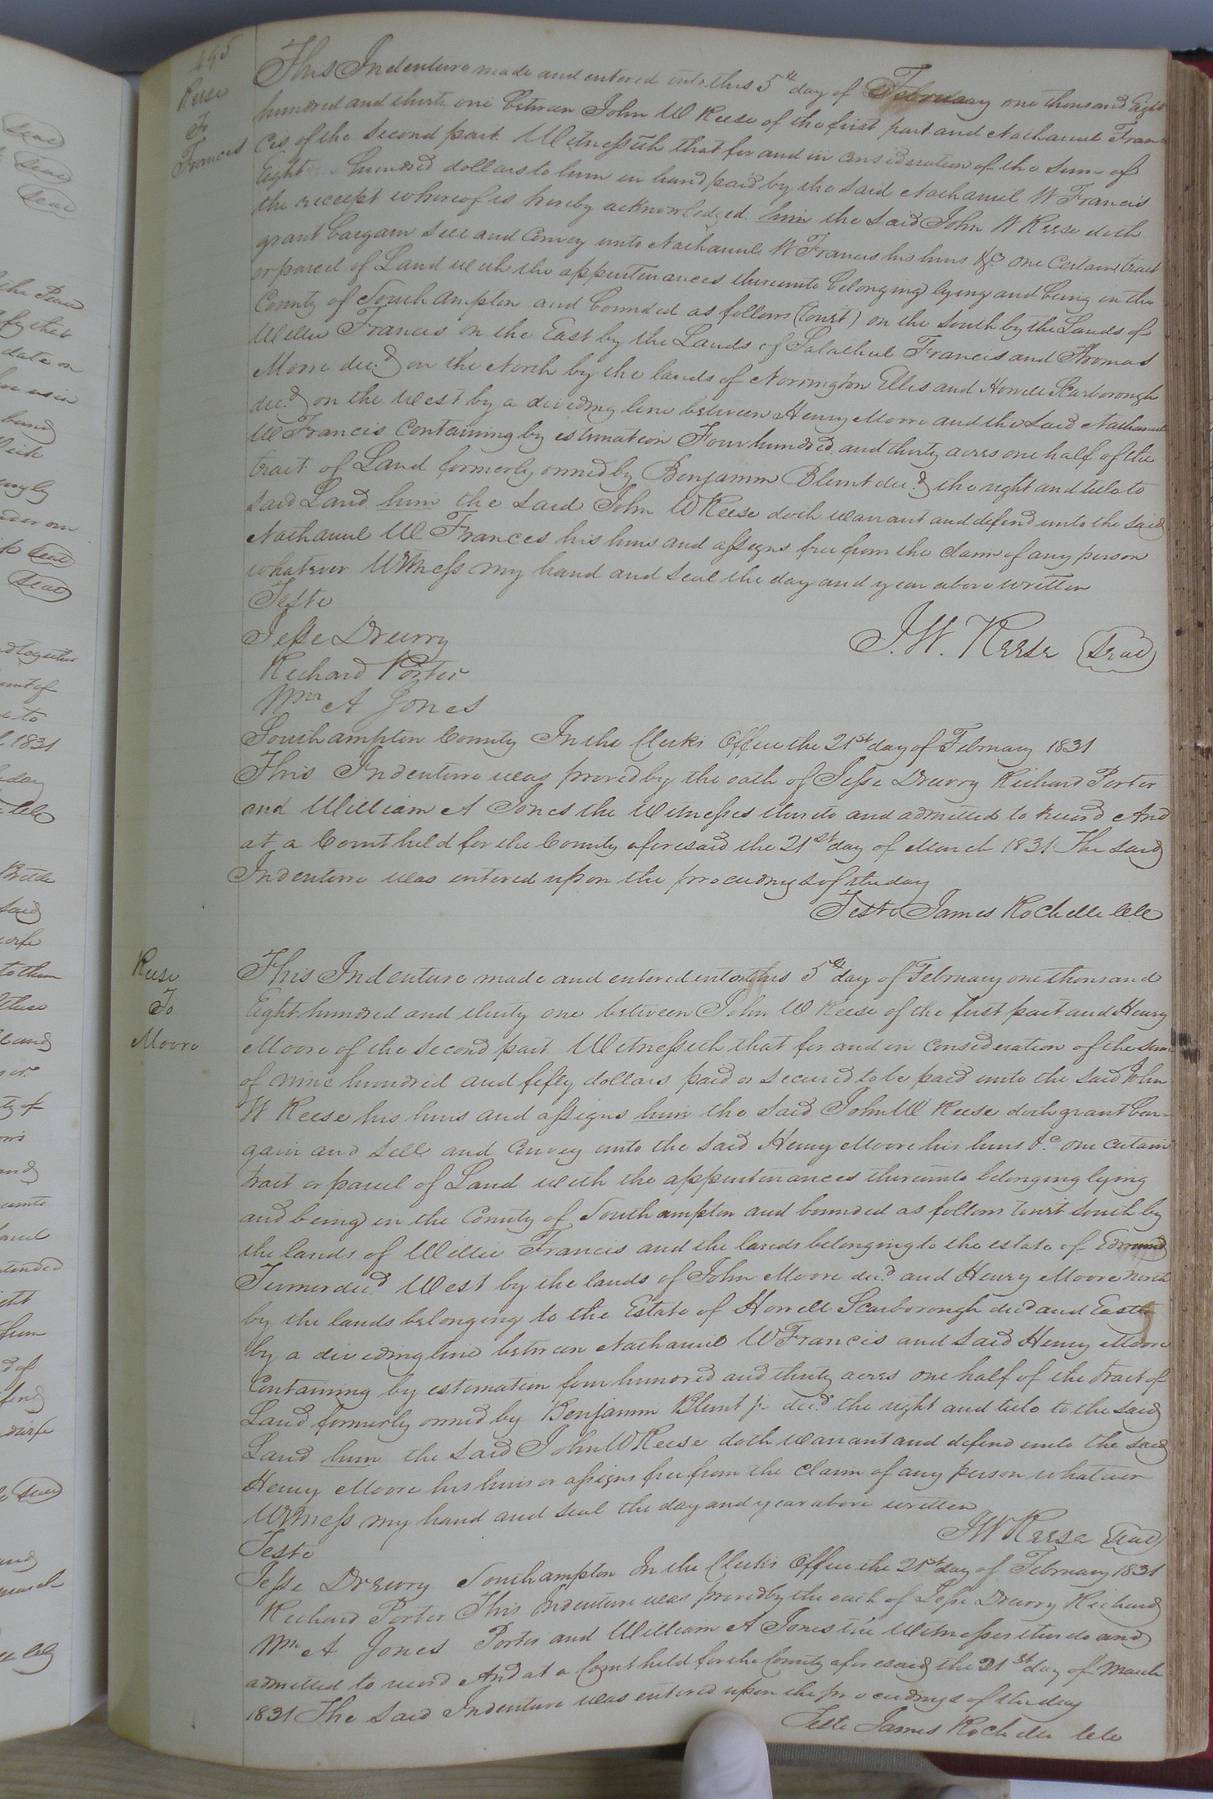 495
Reese
To
Frances
This Indenture made and entered into this 5th day of February one thousand Eight
hundred and thirty one between John W Reese of the first part and Nathaniel Fran
ces, of the second part. Witnesseth that for and in consideration of the sum of
Eight hundred dollars to him in hand paid by the said Nathaniel W Francis
the receipt whereof is hereby acknowledged him the said John W Reese doth
grant bargain sell and convey unto Nathaniel W Francis his heirs &c one certain tract
or parcel of Land with the appurtenances thereunto belonging lying and being in the
County of Southampton and bounded as follows (towit) on the South by the Lands of
Willie Francis on the East by the Lands of Salathiel Francis and Thomas
Moore decd on the North by the lands of Norrington Ellis and Howell Scarborough
decd on the West by a dividing line between Henry Moore and the said Nathaniel
W Francis Containing by estimation Four hundred and thirty acres one half of the
tract of Land formerly owned by Benjamin Blunt decd the right and title to
said Land him the said John W Reese doth warrant and defend unto the said
Nathaniel W Frances his heirs and assigns free from the claim of any person
whatever Witness my hand and seal the day and year above written
Teste
Jesse Drewry
J. W. Reese Seal
Richard Porter
Wm A Jones
Southampton County In the Clerks Office the 21st day of February 1831
This Indenture was proved by the oath of Jesse Drewry Richard Porter
and William A Jones the Witnesses thereto and admitted to record And
at a Court held for the County aforesaid the 21st day of March 1831 The said
Indenture was entered upon the proceedings of the day
Teste James Rochelle Clk
Reese
To
Moore
This Indenture made and entered into this 5th day of February one thousand
Eight hundred and thirty one between John W Reese of the first part and Henry
Moore of the second part Witnesseth that for and in consideration of the sum
of nine hundred and fifty dollars paid or secured to be paid unto the said John
W Reese his heirs and assigns him the said John W Reese doth grant bar-
gain and sell and convey unto the said Henry Moore his heirs &c one certain
tract or parcel of Land with the appurtenances thereunto belonging lying
and being in the County of Southampton and bounded as follows towit South by
the lands of Willie Francis and the lands belonging to the estate of Edmund
Turner decd West by the lands of John Moore decd and Henry Moore North
by the lands belonging to the Estate of Howell Scarborough decd and East
by a dividing line between Nathaniel W Francis and said Henry Moore
Containing by estimation four hundred and thirty acres one half of the tract of
Land formerly owned by Benjamin Blunt jr decd the right and title to the said
Land him the said John W Reese doth warrant and defend unto the said
Henry Moore his heirs or assigns free from the claim of any person whatever
Witness my hand and seal the day and year above written
J W Reese Seal
Teste
Jesse Drewry Southampton In the Clerks Office the 21st day of February 1831
Richard Porter This Indenture was proved by the oath of Jesse Drewry Richard
Wm A Jones Porter and William A Jones the Witnesses thereto and
admitted to record And at a Court held for the County aforesaid the 21st day of March
1831 The said Indenture was entered upon the proceedings of the day
Teste James Rochelle Clk